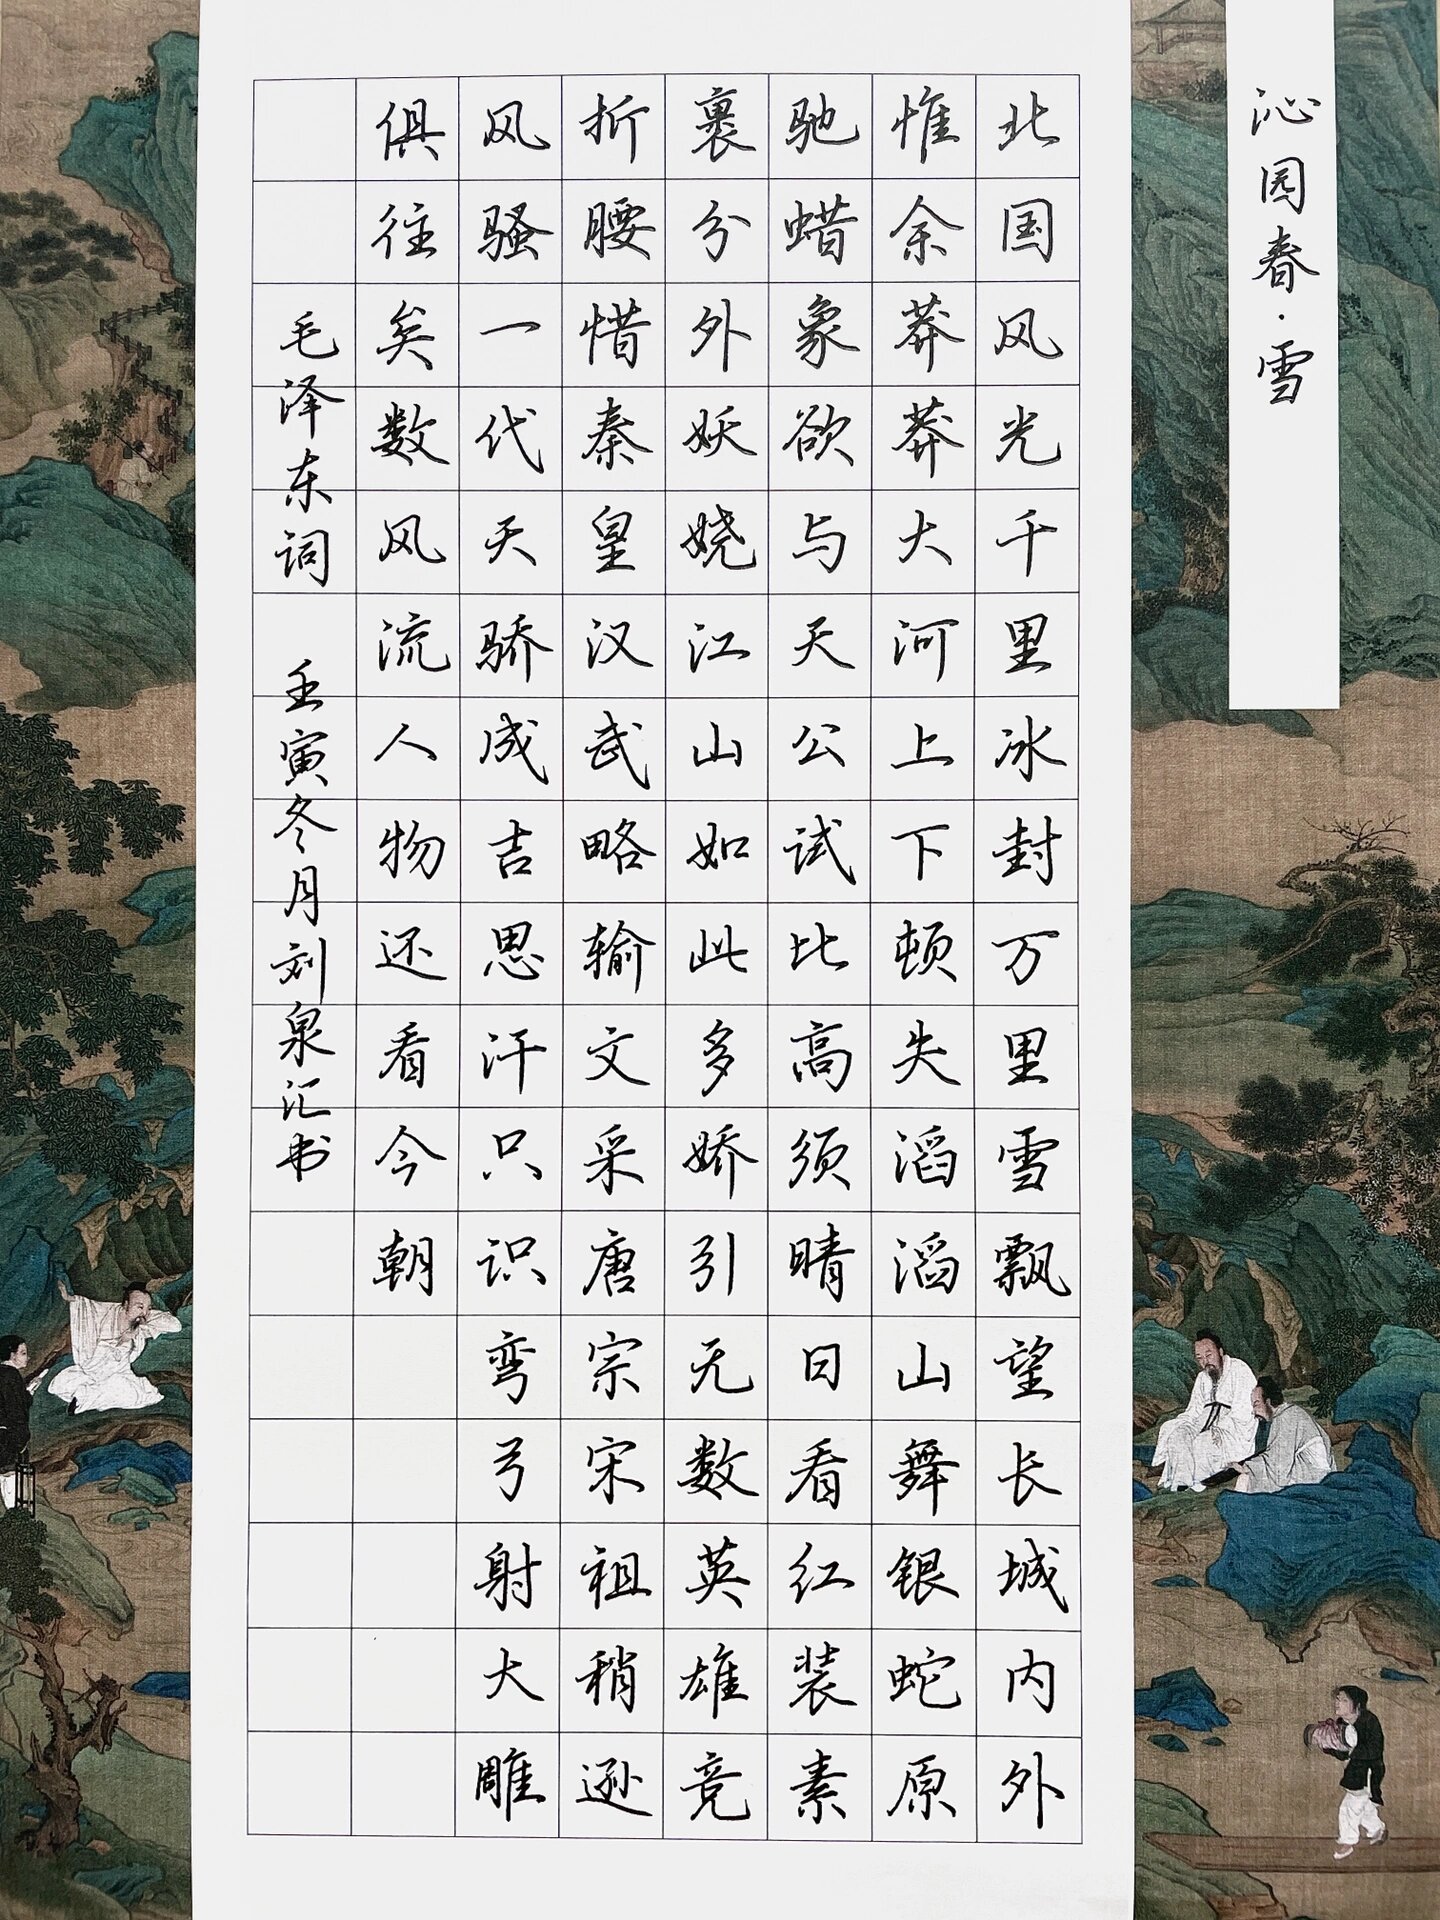 沁园春·雪
北国风光千里冰封万里雪飘望长城内外
惟余莽莽大河上下顿失滔滔山舞银蛇原
驰蜡象欲与天公试比高须晴日看红装素
裹分外妖娆江山如此多娇引无数英雄竞
折腰惜秦皇汉武略输文采唐宗宋祖稍逊
风骚一代天骄成吉思汗只识弯弓射大雕
俱往矣数风流人物还看今朝
毛泽东词 壬寅冬月刘泉汇书